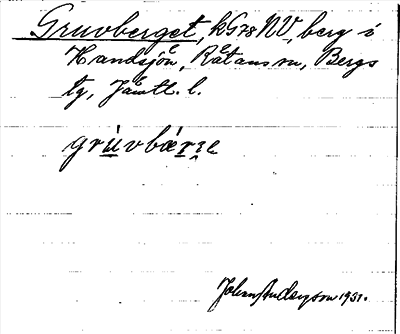 Gruvberget, kG78NV, berg i
Handsjön, Råtans sn, Bergs
tg, Jämtl. l.
grùvbærɪe
Johan Anderson 1931.